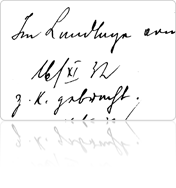 Im Landtage am
16/XI 32
z. K. gebracht.